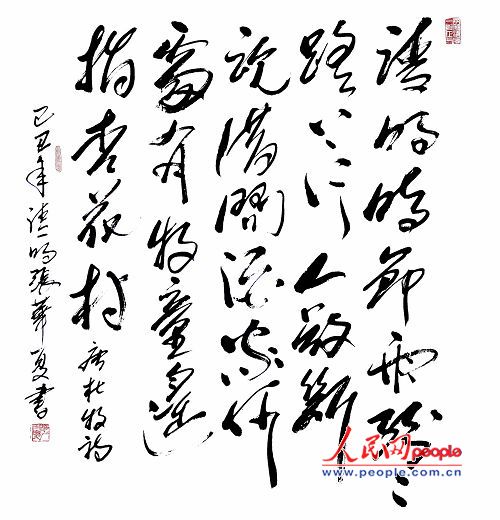 清明時節雨紛〻
路上行人欲斷
魂借問酒家何
處有牧童遙
指杏花村 唐杜牧詩
己丑年清明張華夏書
人民网 people
www.people.com.cn